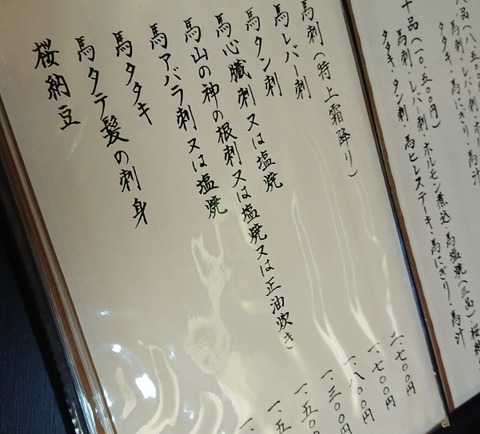 品(八、五〇〇円)
十品(一〇、五〇〇円)
馬刺・レバー刺・ホルモン煮込・馬塩焼(三品)・桜納
タタキ・タン刺・馬ヒレステーキ・馬にぎり・馬汁
馬刺(特上霜降り)
二、七〇〇円
馬レバー刺
一、七〇〇円
馬タン刺
一、八〇〇円
馬心臓刺又は塩焼
一、三〇〇円
馬山の神の根刺又は塩焼又は正油炊き
一、五〇
馬アバラ刺又は塩焼
一、五
馬タタキ
一、
馬タテ髪の刺身
桜納豆